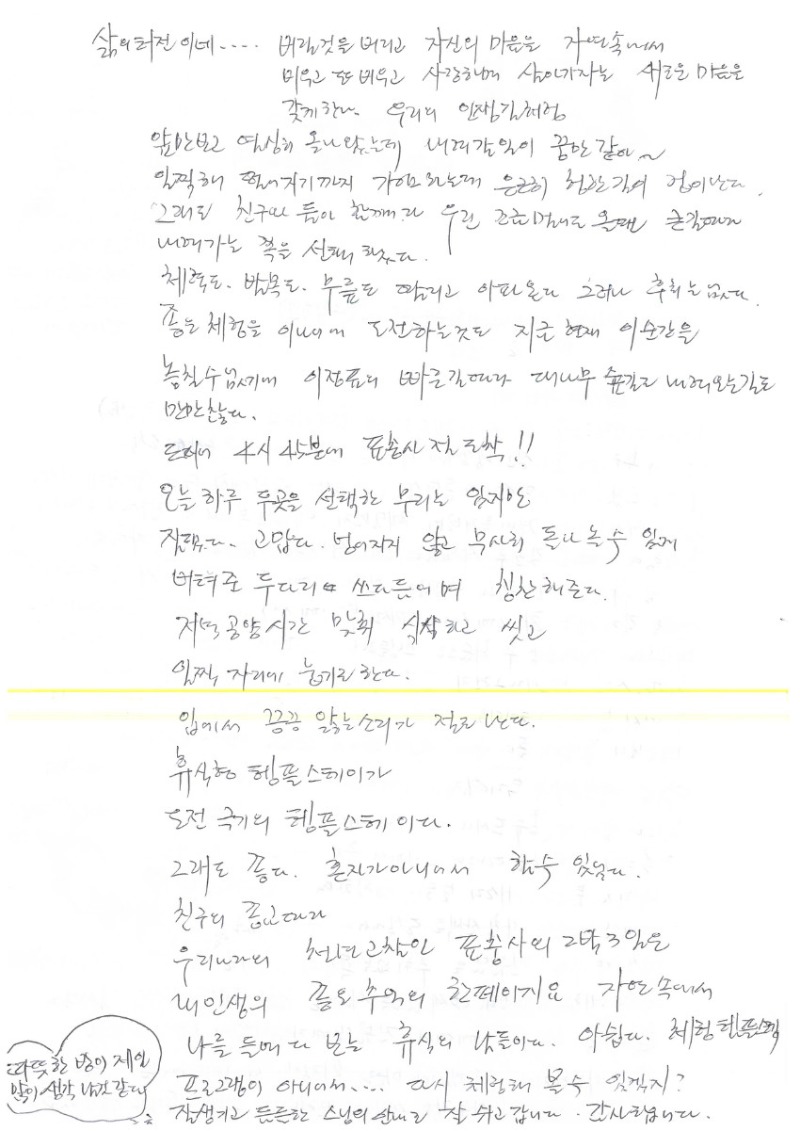 삶의 터전이네.... 버릴것을 버리고 자신의 마음을 자연속에서
비우고 또 비우고 사랑하며 살아가자는 새로운 마음을
갖게한다. 우리의 인생길처럼
앞만보고 열심히 올라왔는데 내려갈일이 꿈만 같아~
일찍해 떨어지기까지 가야하는데 은근히 험한길에 겁이난다.
그래도 친구와 둘이 함께라 우린 조금 올땐 큰길따라
내려가는 쪽을 선택하였다.
체력도. 발목도. 무릎도 땀리고 아파온다 그러나 후회는 없다.
좋은 체험을 이나이에 도전하는것도 지금 현재 이순간을
놓칠수없기에 이정표의 빠른길따라 대나무 숲길로 내려오는길도
만만찮다.
드디어 4시 45분에 표충사 절 도착!!
오늘 하루 두곳을 선택한 우리는 잊지않
고맙다. 넘어지지 않고 무사히 돌아올수 있게
버텨준 두다리에 쓰다듬어며 칭찬해준다.
저녁공양시간 맞춰 식사하고 씻고
일찍 자리에 눕기로한다.
입에서 끙끙 앓는소리가 절로난다.
휴식형 템플스테이가
도전 극기의 템플스테이다.
그래도 좋다. 혼자가아니여서 할수있었다.
친구의 종교따라
우리나라의 천년고찰인 표충사의 2박3일은
내인생의 좋은추억의 한페이지요 자연속에서
나를 들여다 보는 휴식의 나들이다. 아쉽다. 체험템플스테이
프로그램이 아니여서.... 다시 체험해 볼수 있겠지?
잘생기고 든든한 스님의 안내로 잘 쉬고갑니다. 감사합니다.
따뜻한 방이 제일
많이 생각 날것같다